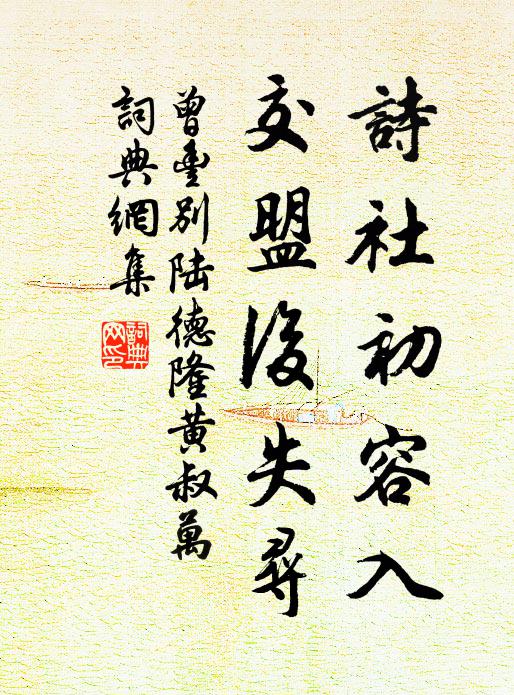 詩社初容入
交盟後失尋
曾豐別陸德隆黃叔萬
詞典網集
詞典網印